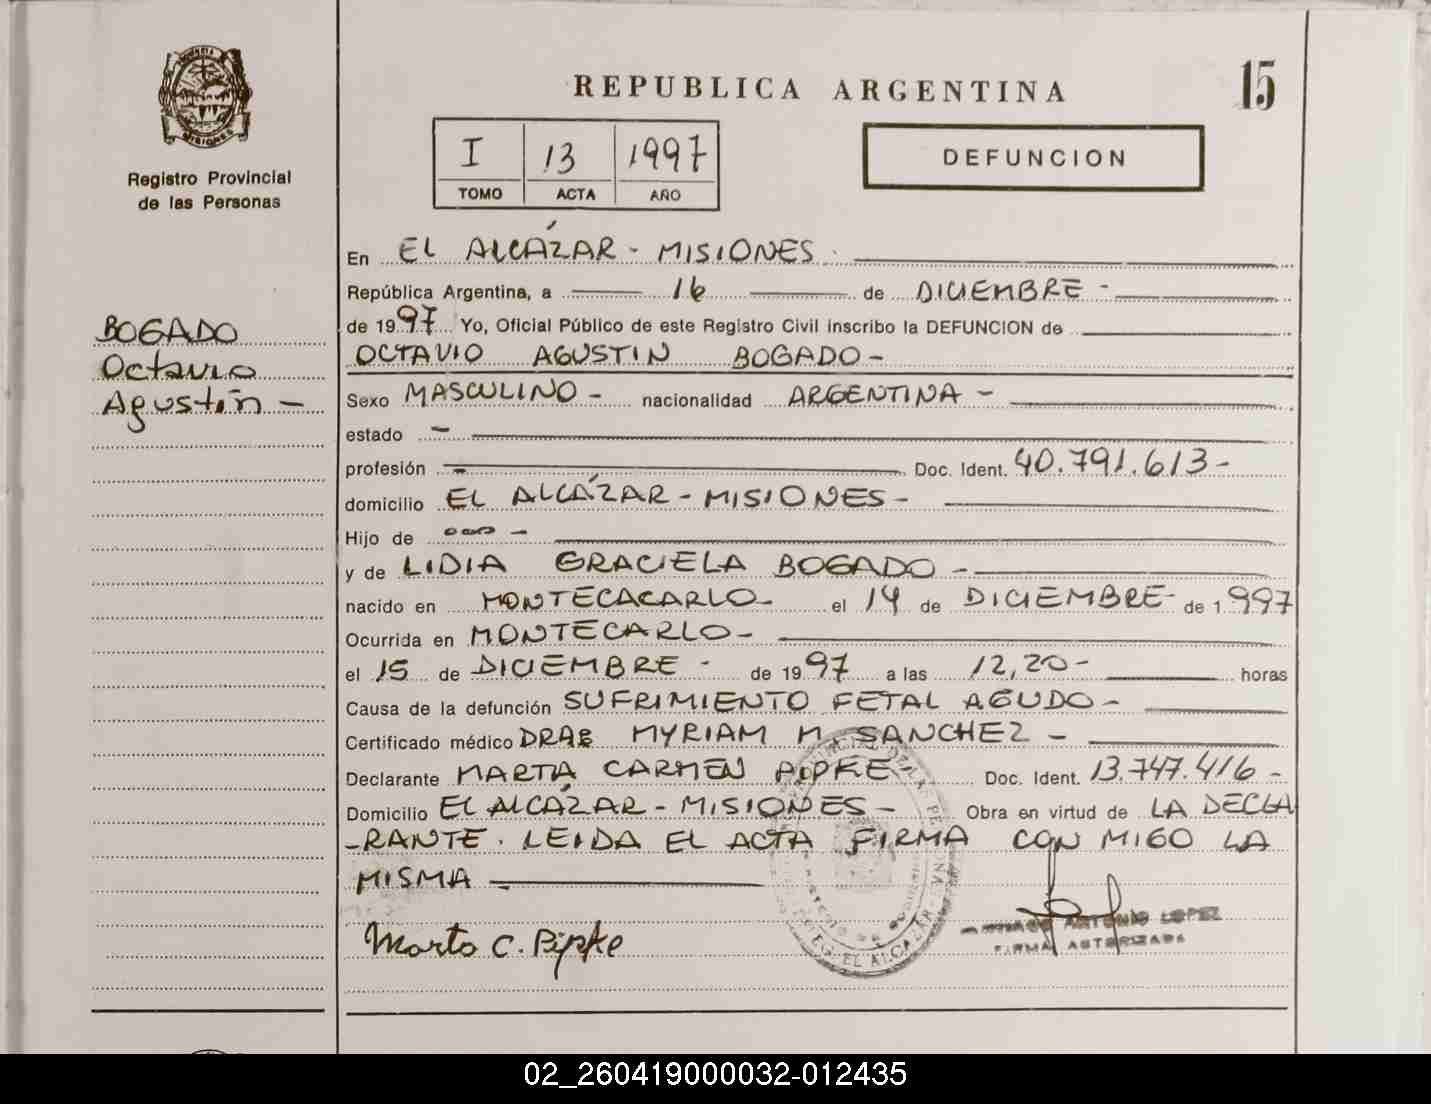 MISIONES
Registro Provincial
de las Personas
BOGADO
Octavio
Agustín -
REPUBLICA ARGENTINA
15
I 13 1997
TOMO ACTA AÑO
DEFUNCION
En EL ALCÁZAR - MISIONES.
República Argentina, a 16 de DICIEMBRE -
de 1997 Yo, Oficial Público de este Registro Civil inscribo la DEFUNCION de
OCTAVIO AGUSTIN BOGADO -
Sexo MASCULINO - nacionalidad ARGENTINA -
estado -
profesión - Doc. Ident. 40.791.613-
domicilio EL ALCÁZAR - MISIONES -
Hijo de -
y de LIDIA GRACIELA BOGADO -
nacido en MONTECACARLO- el 14 de DICIEMBRE- de 1.997
Ocurrida en MONTECARLO-
el 15 de DICIEMBRE - de 1997 a las 12,20- horas
Causa de la defunción SUFRIMIENTO FETAL AGUDO -
Certificado médico MYRIAM M. SANCHEZ -
Declarante MARTA CARMEN PIPKE - Doc. Ident. 13.747.416 -
Domicilio EL ALCÁZAR - MISIONES - Obra en virtud de LA DECLA
-RANTE. LEIDA EL ACTA FIRMA CON MIGO LA
MISMA
Marta C. Pipke
ANTONIO LOPEZ
FIRMA AUTORIZADA
EL ALCAZAR
02_260419000032-012435